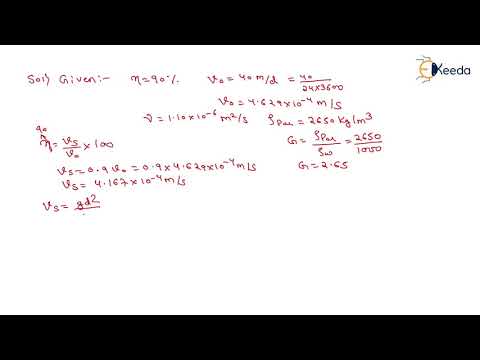 Sol) Given:- η=90% V₀ = 40 m/d = 40/24×3600
V₀ = 4.629×10⁻⁴ m/s
ν = 1.10×10⁻⁶ m²/s ρPar = 2650 kg/m³
90
η = Vs/V₀ × 100 G = ρPar/ρw = 2650/1000
Vs = 0.9 V₀ = 0.9×4.629×10⁻⁴ m/s G = 2.65
Vs = 4.167×10⁻⁴ m/s
Vs = gd²
Keeda